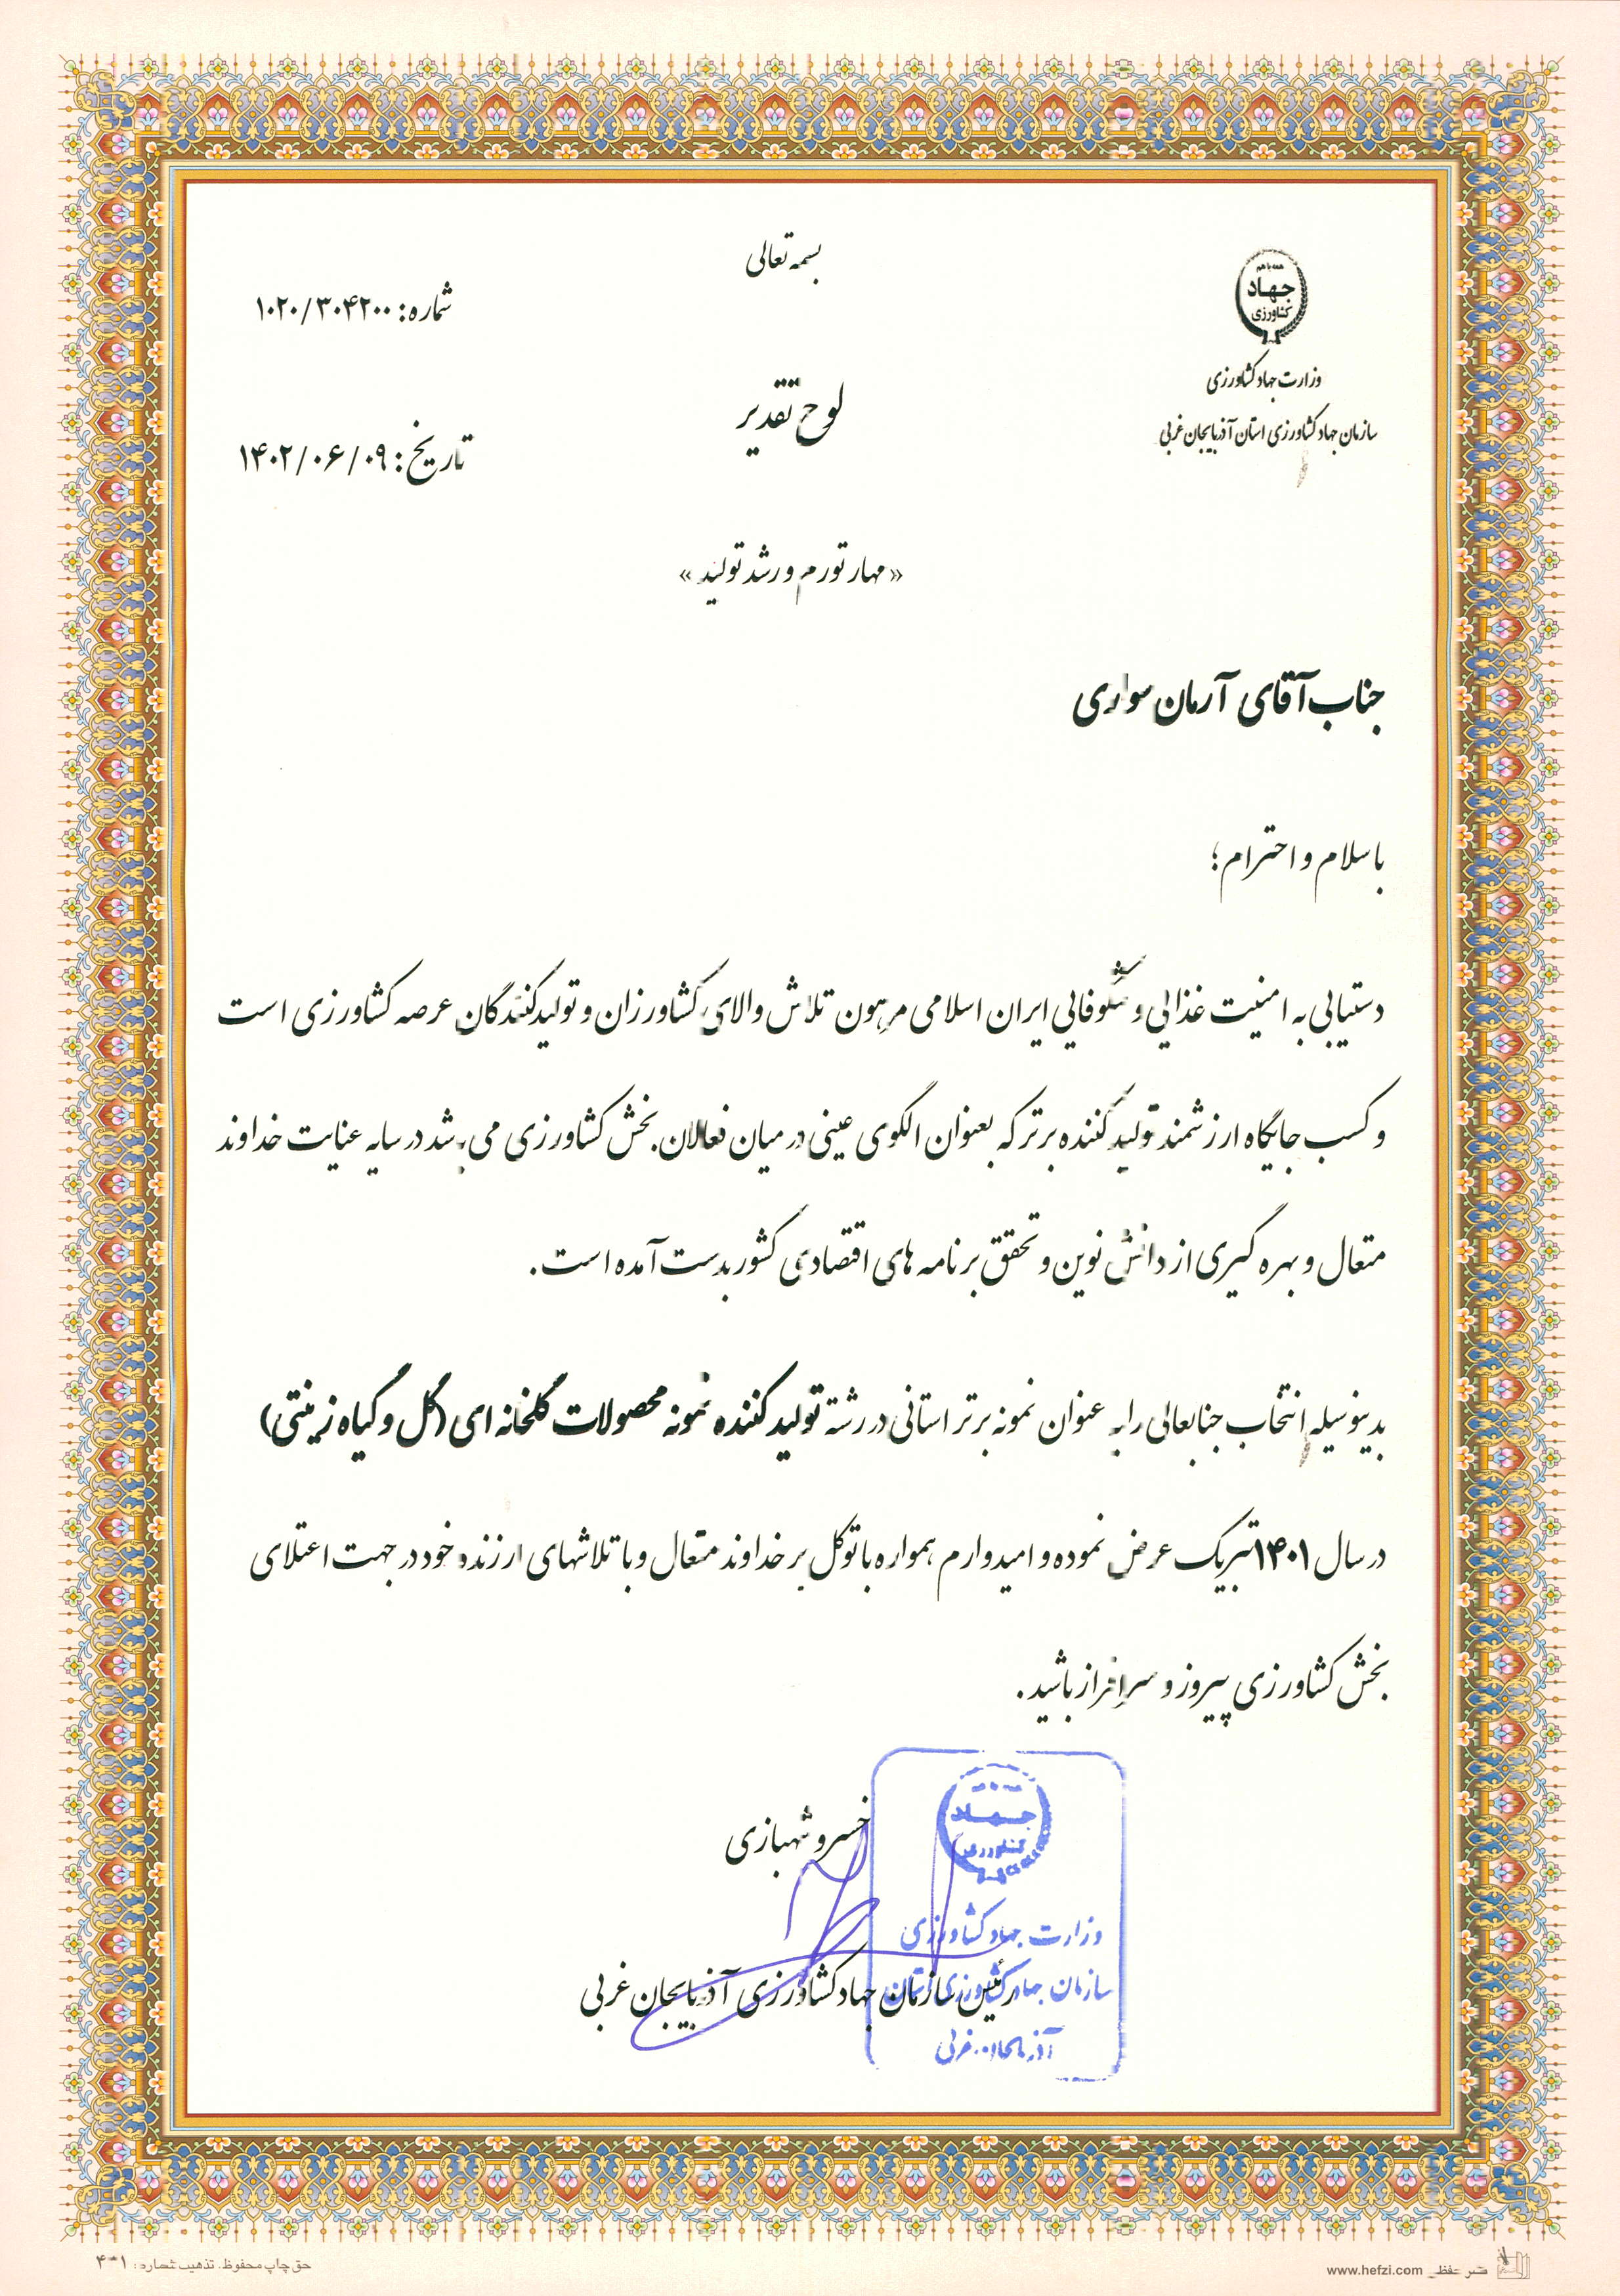 بسمه تعالی
همه با هم
جهاد
کشاورزی
وزارت جهاد کشاورزی
سازمان جهاد کشاورزی استان آذربایجان غربی
شماره: ۱۰۲۰/۳۰۴۲۰۰
لوح تقدیر
تاریخ: ۱۴۰۲/۰۶/۰۹
«مهار تورم و رشد تولید»
جناب آقای آرمان سواری
با سلام و احترام؛
دستیابی به امنیت غذایی و شکوفائی ایران اسلامی مرهون تلاش والای کشاورزان و تولیدکنندگان عرصه کشاورزی است
و کسب جایگاه ارزشمند تولید کننده برتر که بعنوان الگوی عینی در میان فعالان بخش کشاورزی می باشد در سایه عنایت خداوند
متعال و بهره گیری از دانش نوین و تحقق برنامه های اقتصادی کشور بدست آمده است.
بدینوسیله انتخاب جنابعالی را به عنوان نمونه برتر استانی در رشته تولید کننده نمونه محصولات گلخانه ای (گل و گیاه زینتی)
در سال ۱۴۰۱ تبریک عرض نموده و امیدوارم همواره با توکل بر خداوند متعال و با تلاشهای ارزنده خود در جهت اعتلای
بخش کشاورزی پیروز و سرافراز باشید.
خسرو شهبازی
رئیس سازمان جهاد کشاورزی آذربایجان غربی
جهاد
کشاورزی
وزارت جهاد کشاورزی
سازمان جهاد کشاورزی استان
آذربایجان غربی
حق چاپ محفوظ. تذهیب شماره: ۴۰۱
نشر حفظی www.hefzi.com